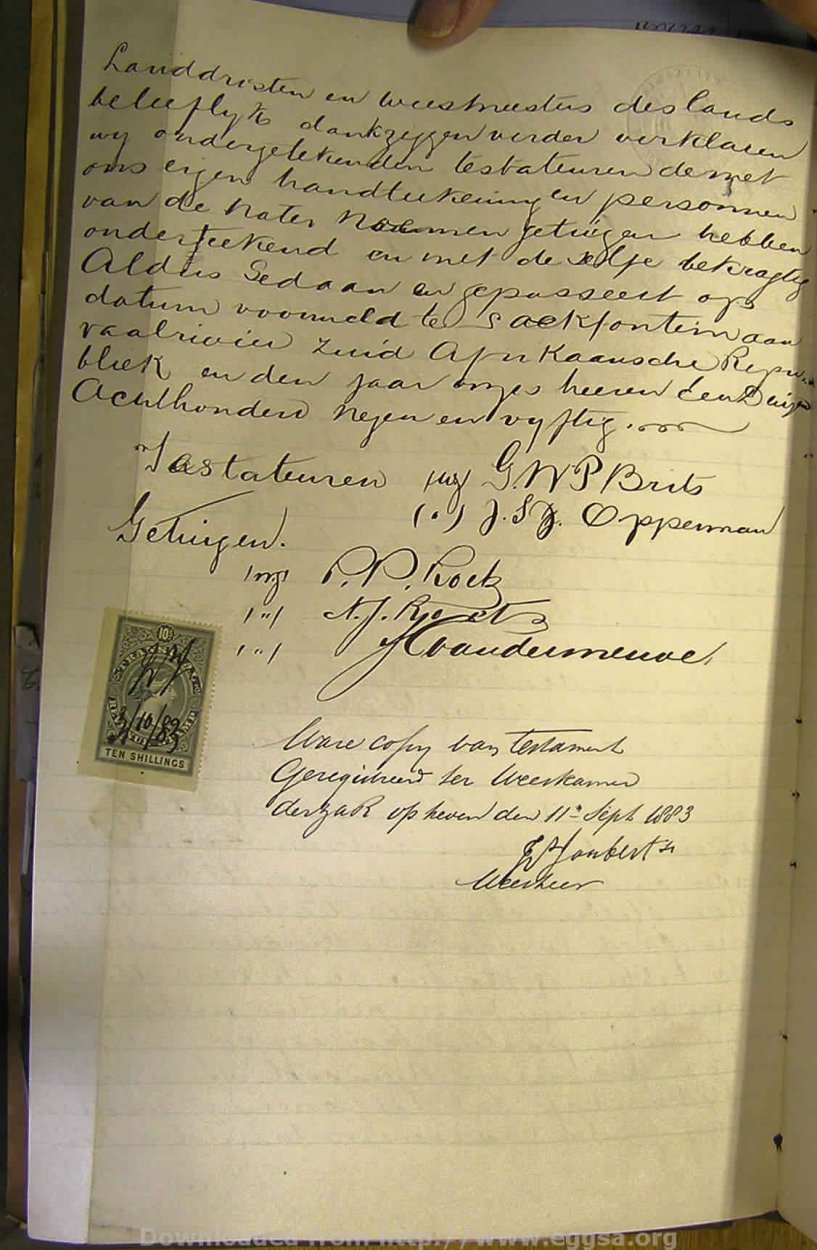 Landdrosten en weesmeesters des lands
beleeflyk dankzeggen verder verklaren
wy ondergetekenden testateuren de met
ons eigen handteekening en personnen
van de nater noemen getuigen hebben
onderteekend en met de selfe bekragtig
Aldus Gedaan en gepasseert op
datum voormeld te Sackfontein aan
vaalrivier Zuid Afrikaansche Repu-
bliek en den jaar onzes heeren Een Duizend
Achthonderd negen en vyftig.
Testateuren (wg) G.W.P Brits
(") J. S. J. Opperman
Getuigen.
(wg) P. P. Roetz
(") N. J. Roetz
(") vandermerwe
TRANSVAAL
10/
3/10/83
TEN SHILLINGS
Ware copy van testament
Geregistreerd ter Weeskamer
der ZAR op heden den 11e Sept 1883
Joubert
Weesheer
Downloaded from http://www.eggsa.org